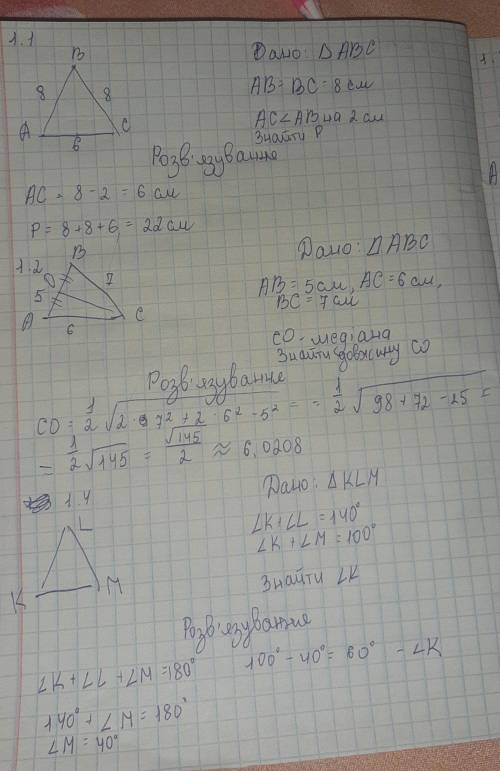 1.1
B
8 8
A C
6
Дано: △ABC
AB = BC = 8 см
AC < AB на 2 см
Знайти P
Розв'язування
AC = 8 - 2 = 6 см
P = 8 + 8 + 6 = 22 см
1.2
B
O 7
5
A 6 C
Дано: △ABC
AB = 5 см, AC = 6 см,
BC = 7 см
CO - медіана
Знайти довжину CO
Розв'язування
CO = 1/2 √2 · 7² + 2 · 6² - 5² = = 1/2 √98 + 72 - 25 =
= 1/2 √145 = √145/2 ≈ 6,0208
1.4
L
K M
Дано: △KLM
∠K + ∠L = 140°
∠K + ∠M = 100°
Знайти ∠K
Розв'язування
∠K + ∠L + ∠M = 180°
100° - 40° = 60° - ∠K
140° + ∠M = 180°
∠M = 40°
1.
A